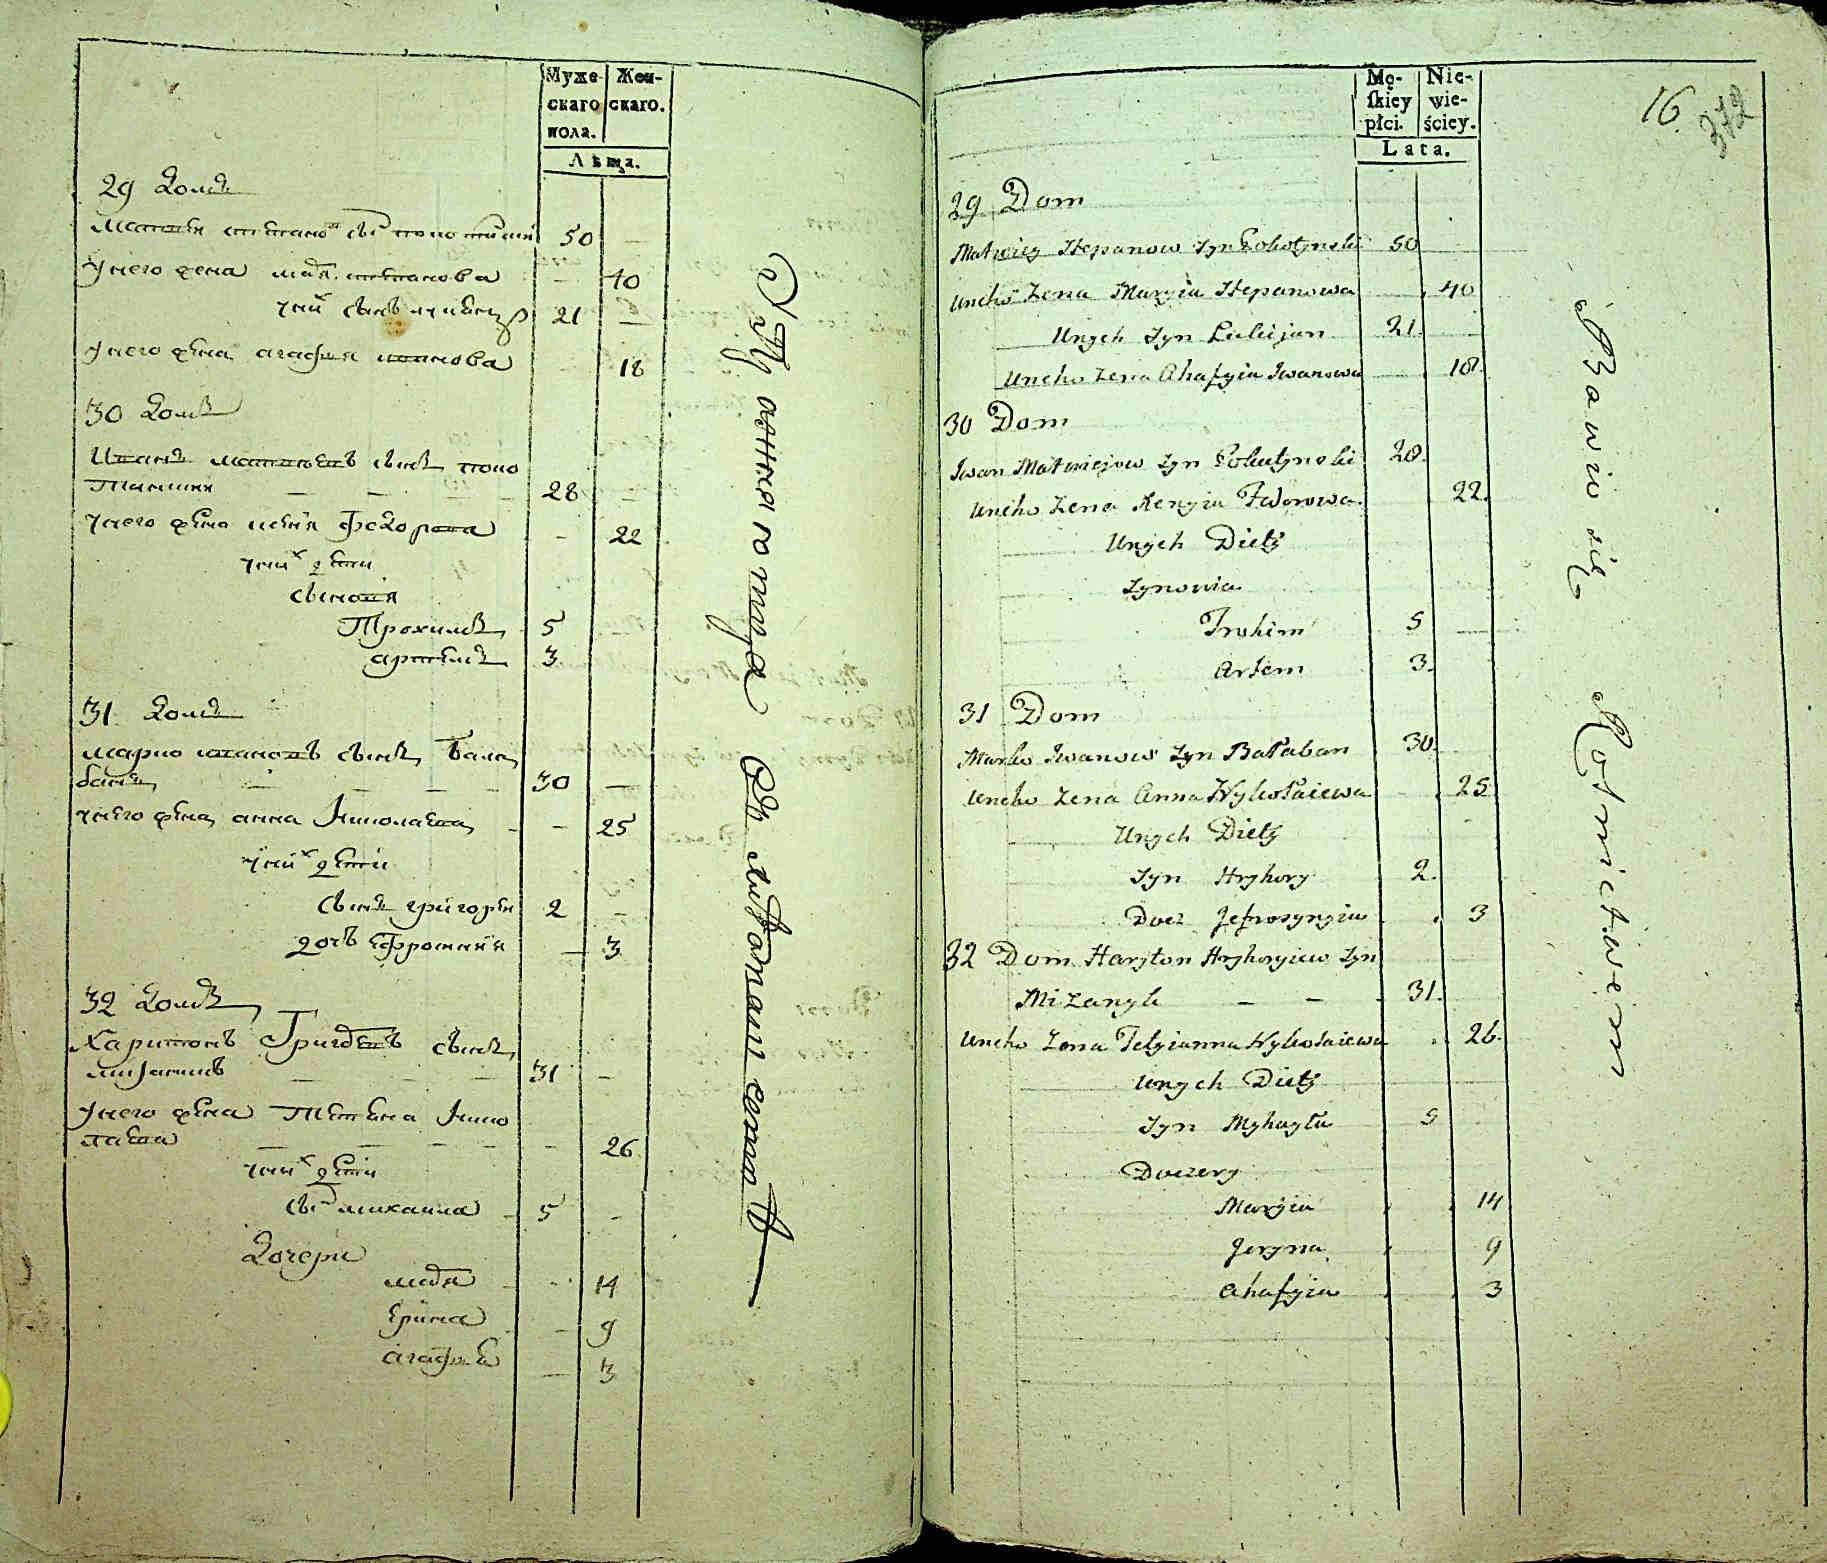 Муже-
скаго
пола.
Жен-
скаго.
Лѣта.
29 Домъ
Матвей степано сы поко 50
Унего жена мар степанова 40
Уни сынъ 21
Унего жена агафия иванова 18
30 Домъ
Иванъ матвеевъ сынъ поко
28
Унего жена Федорова 22
Уних дети
сыновя
Трохимъ 5
артемъ 3
31 Домъ
марко ивановъ сынъ Бала
банъ 30
Унего жена анна Николаева 25
Уних дети
сынъ григорей 2
дочь Ефросиния 3
32 Домъ
Харитонъ Григоревъ сынъ
31
Унего жена Тетяна Нико
лаева 26
Уних дети
сы михаила 5
Дочери
мария 14
Ерина 9
агафия 3
Męskiey
płci.
Niewieściey.
Lata.
16
372
29 Dom
Matwiey Stepanow Syn Pokotynski 50
Uneho Zena Maryia Stepanowa 40
Unych Syn Lukijan 21
Uneho Zena Ahafyia Iwanowa 18
30 Dom
Iwan Matwiejow Syn Pokotynski 28
Uneho Zena Xenyia Fedorowa 22
Unych Diety
Synowia
Trohim 5
Artem 3
31 Dom
Marko Iwanow Syn Bałaban 30
Uneho Zena Anna Nykołaiewa 25
Unych Diety
Syn Hryhory 2
Docz Jefrosynyia 3
32 Dom Haryton Hryhoryiew Syn
Mizanyk 31
Uneho Zena Tetyianna Nykołaiewa 26
Unych Diety
Syn Myhayła 5
Doczery
Maryia 14
Jeryna 9
Ahafyia 3
Bawi się Rotnictwem